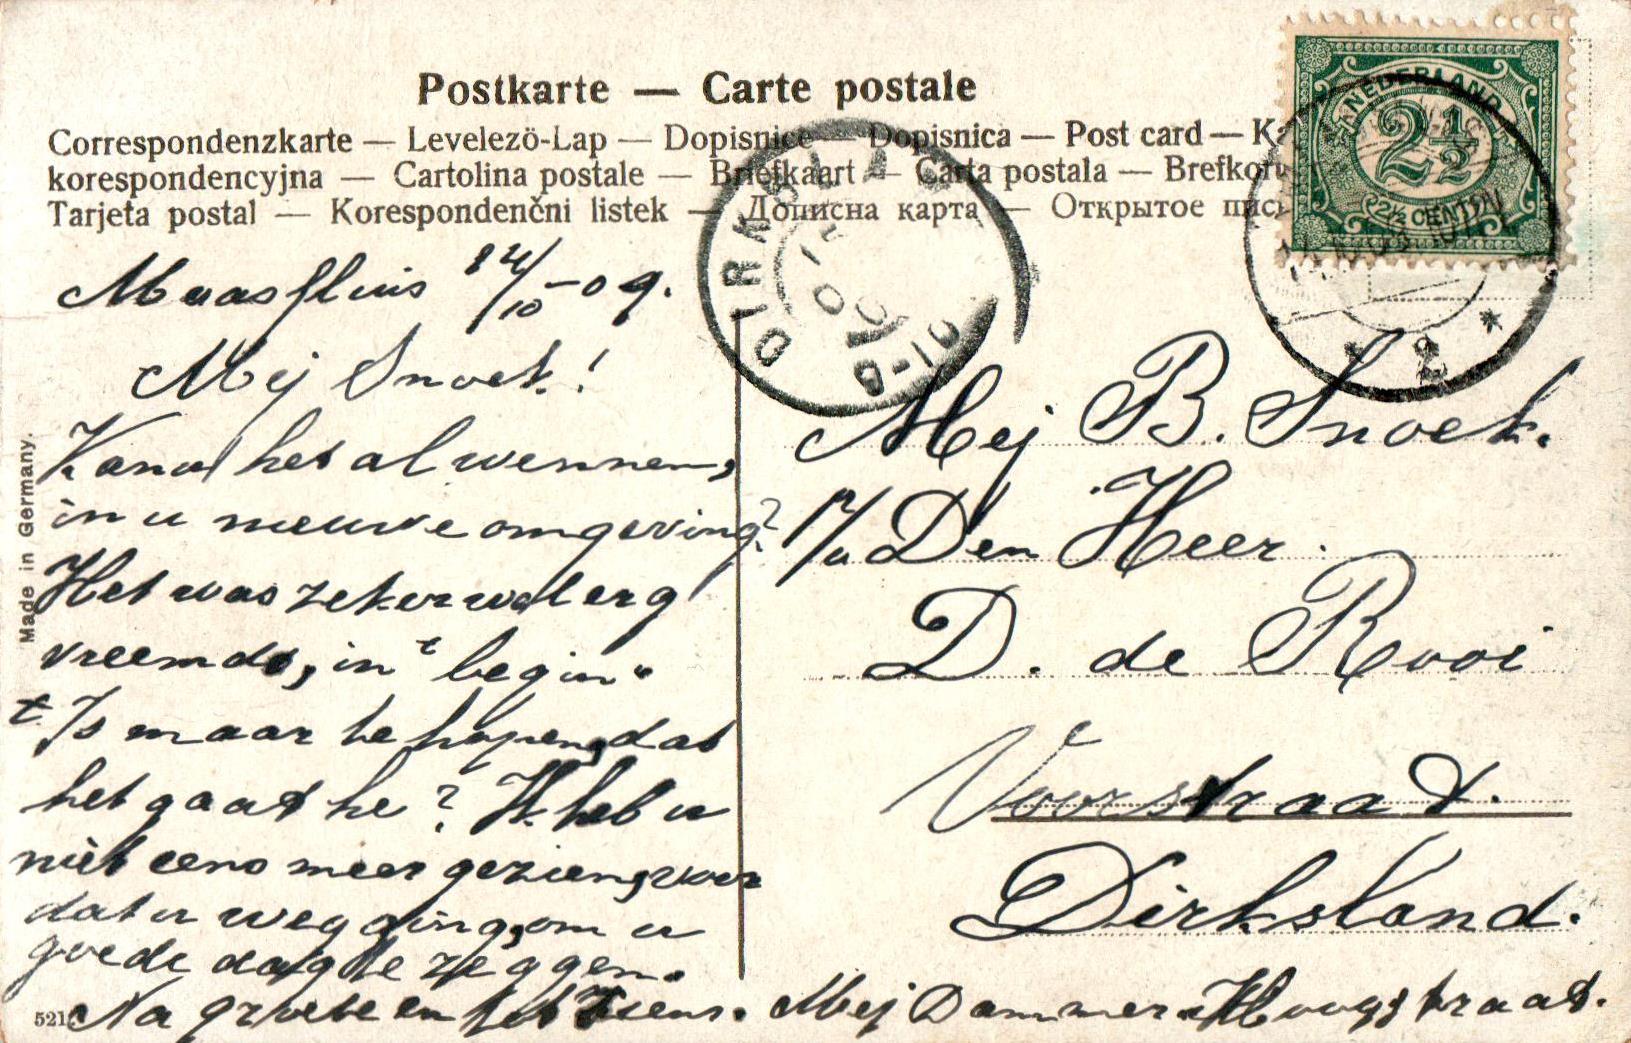 Postkarte — Carte postale
Correspondenzkarte — Levelezö-Lap — Dopisnice — Dopisnica — Post card — Ka
korespondencyjna — Cartolina postale — Briefkaart — Carta postala — Brefkort
Tarjeta postal — Korespondenčni listek — Дописна карта — Открытое пись
NEDERLAND
2½
2½ CENT
DIRKSLAND
2
Maassluis 14/10-09.
Mej Snoek!
Kanu het al wennen,
in u nieuwe omgeving?
Het was zeker wel erg
vreemd, in t begin.
t Is maar te hopen, dat
het gaat he? Ik heb u
niet eens meer gezien, voor
dat u weg ging, om u
goede dag te zeggen.
Na groete en tot ziens. Mej Dammer Hoogstraat.
Mej B. Snoek.
p/a Den Heer
D. de Rooi
Voorstraat.
Dirksland.
Made in Germany.
521